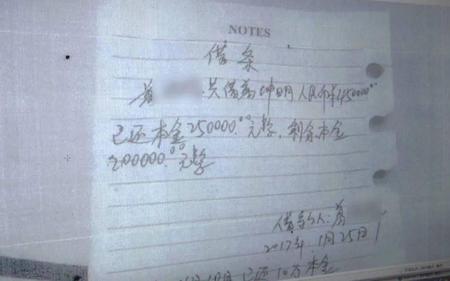 NOTES
借条
黄 共借 人民币450000.00
已还本金250000.00元整,剩余本金
200000.00元整
借款人:黄
2017年1月25日
已还10万本金